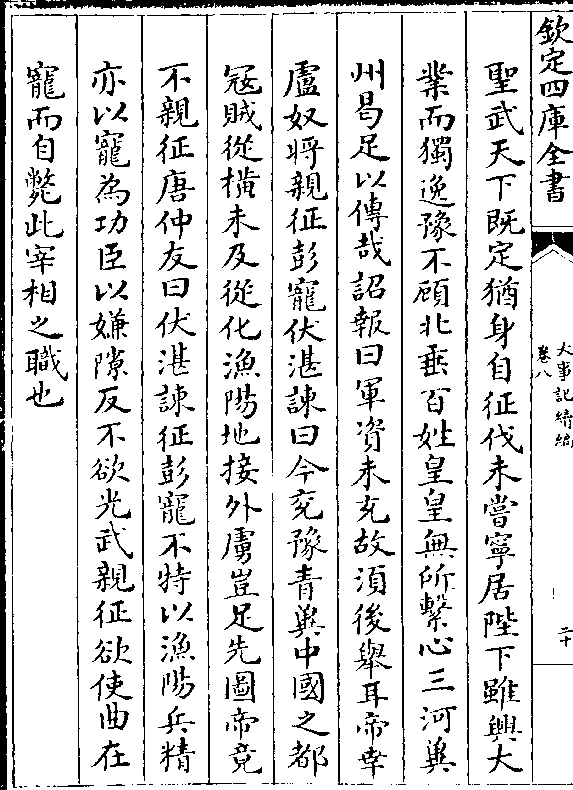 欽定四庫全書
大事記續編
卷八
二十
聖武天下既定猶身自征伐未嘗寧居陛下雖興大
業而獨逸豫不顧北垂百姓皇皇無所繫心三河兾
州曷足以傳哉詔報曰軍資未充故須後舉耳帝幸
盧奴將親征彭寵伏湛諫曰今兖豫青兾中國之都
冦賊從橫未及從化漁陽地接外虜豈足先圖帝竟
不親征唐仲友曰伏湛諫征彭寵不特以漁陽兵精
亦以寵為功臣以嫌隙反不欲光武親征欲使曲在
寵而自斃此宰相之職也